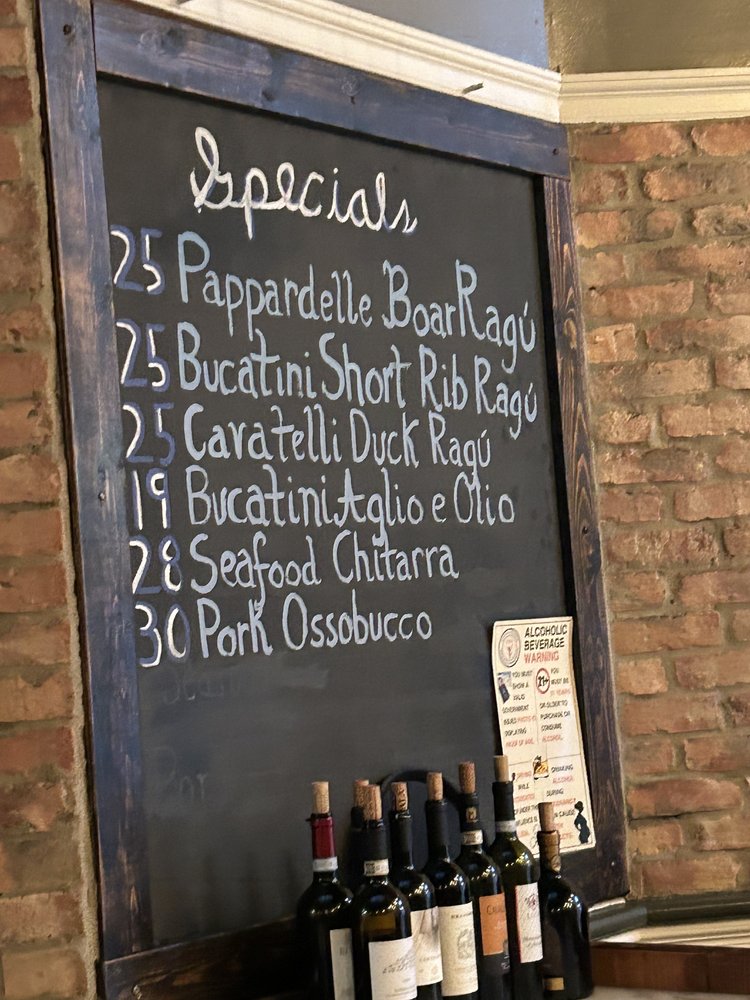 Specials
25 Pappardelle Boar Ragú
25 Bucatini Short Rib Ragú
25 Cavatelli Duck Ragú
19 Bucatini Aglio e Olio
28 Seafood Chitarra
30 Pork Ossobucco
ALCOHOLIC
BEVERAGE
WARNING
YOU MUST
SHOW A
VALID
GOVERNMENT
ISSUED PHOTO ID
DISPLAYING
PROOF OF AGE.
21+
YOU
MUST BE
21 YEARS
OR OLDER TO
PURCHASE OR
CONSUME
ALCOHOL.
DRIVING
WHILE
DRINKING
ALCOHOL
DURING